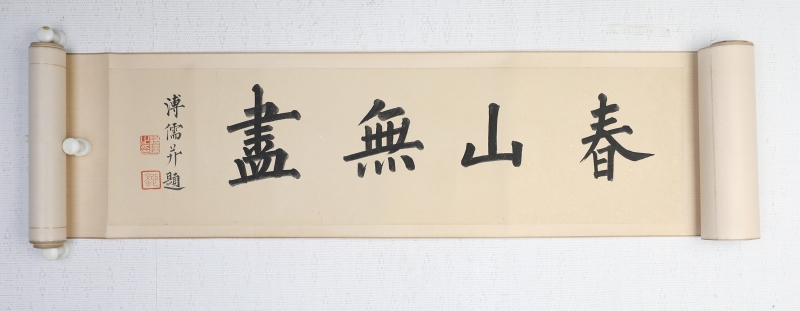 春山無盡
溥儒并題